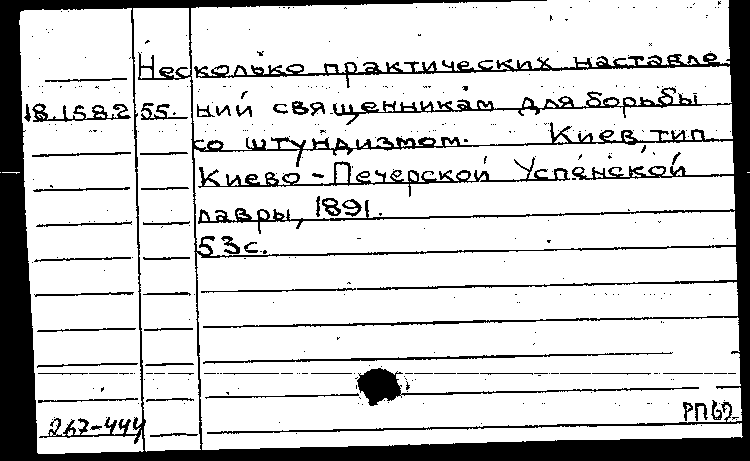 Несколько практических наставле-
18.158.2 55. ний священникам для борьбы
со штундизмом. Киев, тип.
Киево-Печерской Успенской
лавры, 1891.
53с.
267-444